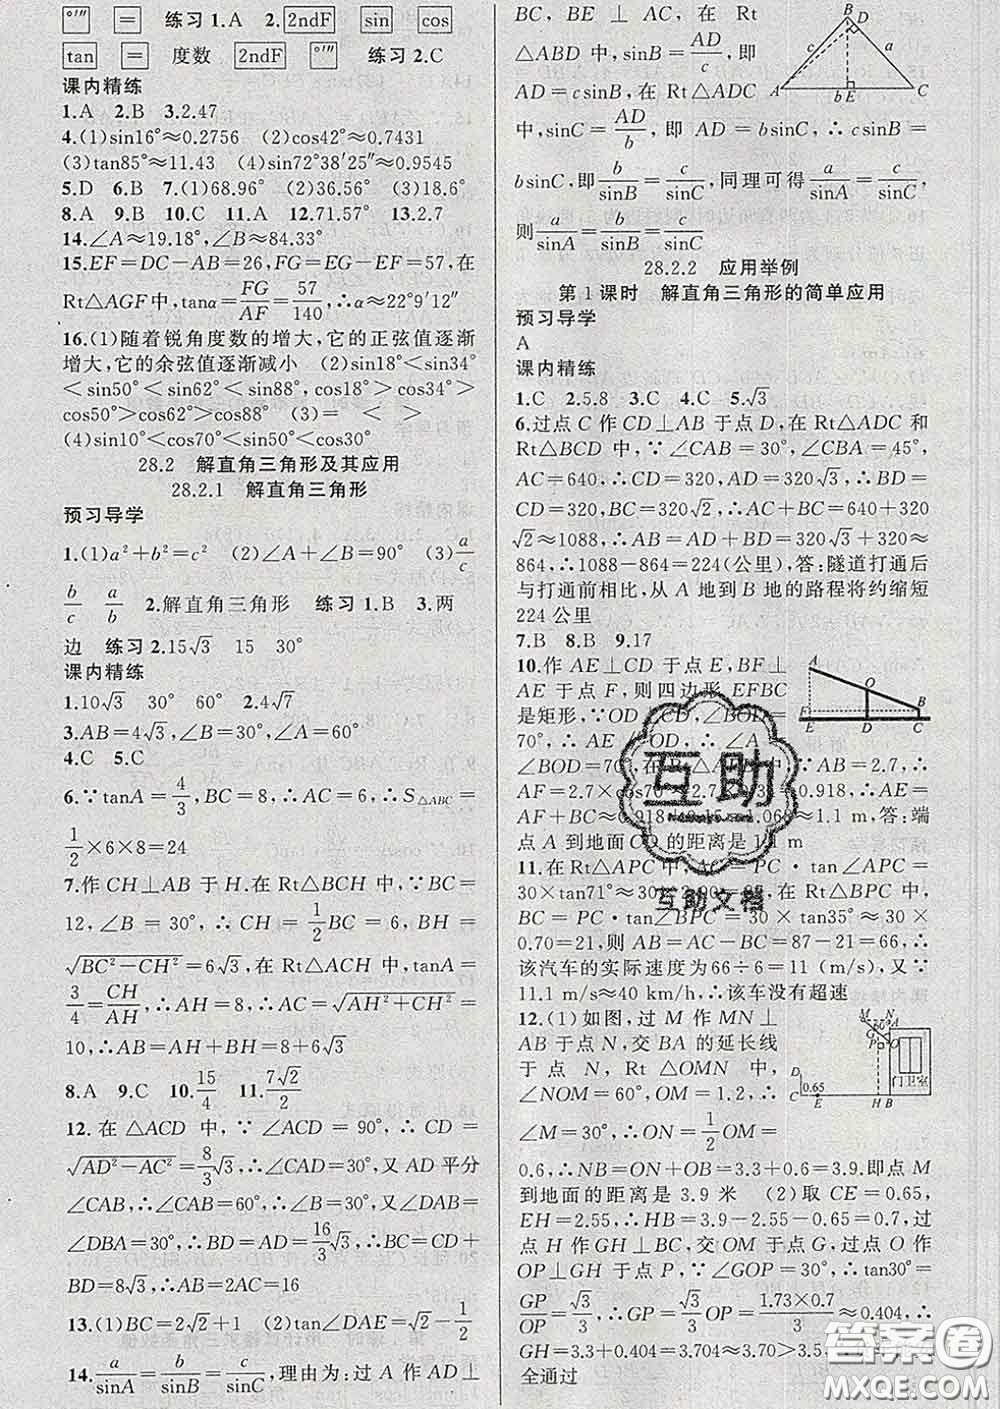 °′″ = 练习1.A 2. 2ndF sin cos
tan = 度数 2ndF °′″ 练习2.C
课内精练
1.A 2.B 3.2.47
4.(1)sin16°≈0.2756 (2)cos42°≈0.7431
(3)tan85°≈11.43 (4)sin72°38′25″≈0.9545
5.D 6.B 7.(1)68.96° (2)36.56° (3)18.6°
8.A 9.B 10.C 11.A 12.71.57° 13.2.7
14.∠A≈19.18°,∠B≈84.33°
15.EF=DC−AB=26,FG=EG−EF=57,在
Rt△AGF中,tanα=FG/AF=57/140,∴α≈22°9′12″
16.(1)随着锐角度数的增大,它的正弦值逐渐
增大,它的余弦值逐渐减小 (2)sin18°<sin34°
<sin50°<sin62°<sin88°,cos18°>cos34°>
cos50°>cos62°>cos88° (3)= < >
(4)sin10°<cos70°<sin50°<cos30°
28.2 解直角三角形及其应用
28.2.1 解直角三角形
预习导学
1.(1)a²+b²=c² (2)∠A+∠B=90° (3)a/c
b/c a/b 2.解直角三角形 练习1.B 3.两
边 练习2.15√3 15 30°
课内精练
1.10√3 30° 60° 2.4√7
3.AB=4√3,∠B=30°,∠A=60°
4.C 5.C
6.∵tanA=4/3,BC=8,∴AC=6,∴S△ABC=
1/2×6×8=24
7.作CH⊥AB于H.在Rt△BCH中,∵BC=
12,∠B=30°,∴CH=1/2BC=6,BH=
√(BC²−CH²)=6√3,在Rt△ACH中,tanA=
3/4=CH/AH,∴AH=8,∴AC=√(AH²+CH²)=
10,∴AB=AH+BH=8+6√3
8.A 9.C 10.15/4 11.7√2/2
12.在△ACD中,∵∠ACD=90°,∴CD=
√(AD²−AC²)=8/3√3,∴∠CAD=30°,又AD平分
∠CAB,∴∠CAB=60°,∴∠B=30°,∴∠DAB=
∠DBA=30°,∴BD=AD=16/3√3,∴BC=CD+
BD=8√3,∴AB=2AC=16
13.(1)BC=2√2+1 (2)tan∠DAE=√2−1/2
14.a/sinA=b/sinB=c/sinC,理由为:过A作AD⊥
BC,BE⊥AC,在Rt
△ABD中,sinB=AD/c,即
AD=csinB,在Rt△ADC
中,sinC=AD/b,即AD=bsinC,∴csinB=
bsinC,即b/sinB=c/sinC,同理可得a/sinA=c/sinC,
则a/sinA=b/sinB=c/sinC
B D c a A b E C
28.2.2 应用举例
第1课时 解直角三角形的简单应用
预习导学
A
课内精练
1.C 2.5.8 3.C 4.C 5.√3
6.过点C作CD⊥AB于点D,在Rt△ADC和
Rt△BCD中,∵∠CAB=30°,∠CBA=45°,
AC=640,∴CD=320,AD=320√3,∴BD=
CD=320,BC=320√2,∴AC+BC=640+320
√2≈1088,∴AB=AD+BD=320√3+320≈
864,∴1088−864=224(公里),答:隧道打通后
与打通前相比,从A地到B地的路程将约缩短
224公里
7.B 8.B 9.17
10.作AE⊥CD于点E,BF⊥
AE于点F,则四边形EFBC
是矩形,∵OD⊥CD,∠BOD=
70°,∴AE∥OD,∴∠A=
∠BOD=70°,在Rt△AFB中,∵AB=2.7,∴
AF=2.7×cos70°≈2.7×0.34=0.918,∴AE=
AF+BC≈0.918+0.15=1.068≈1.1 m,答:端
点A到地面CD的距离是1.1 m
A O F B E D C
11.在Rt△APC中,AC=PC·tan∠APC=
30×tan71°≈30×2.90=87,在Rt△BPC中,
BC=PC·tan∠BPC=30×tan35°≈30×
0.70=21,则AB=AC−BC=87−21=66,∴
该汽车的实际速度为66÷6=11(m/s),又∵
11.1 m/s≈40 km/h,∴该车没有超速
12.(1)如图,过M作MN⊥
AB于点N,交BA的延长线
于点N,Rt△OMN中,
∠NOM=60°,OM=1.2,∴
∠M=30°,∴ON=1/2OM=
0.6,∴NB=ON+OB=3.3+0.6=3.9.即点M
到地面的距离是3.9米 (2)取CE=0.65,
EH=2.55,∴HB=3.9−2.55−0.65=0.7,过
点H作GH⊥BC,交OM于点G,过点O作
OP⊥GH于点P,∵∠GOP=30°,∴tan30°=
GP/OP=√3/3,∴GP=√3/3OP=1.73×0.7/3≈0.404,∴
GH=3.3+0.404=3.704≈3.70>3.5
全通过
M N A G P O D C 0.65 E H B 门卫室
互助
互助文档
答案圈
MXQE.COM